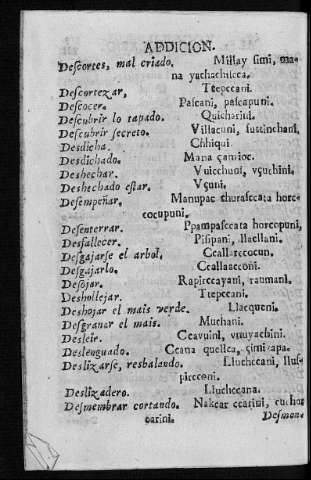 ADDICION.
Descortes, mal criado. Millay simi, ma-
na yachachisca.
Descortezar, Ttepccani.
Descocer. Pascani, pascapuni.
Descubrir lo tapado. Quicharini.
Descubrir secreto. Villacuni, suttinchani,
Desdicha. Chhiqui
Desdichado. Mana çamioc.
Deshechar. Vuicchuni, vçuchini.
Deshechado estar. Vçuni.
Desempeñar, Manupac churascata horc-
cocupuni.
Desenterrar. Ppampascata horcopuni,
Desfallecer. Pisipani, llacllani.
Desgajarse el arbol, Ccallarccocun.
Desgajarlo, Ccallacconi.
Desojar, Rapirccayani, raumani.
Deshollejar. Ttepccani.
Deshojar el mais verde. Llacqueni.
Desgranar el mais. Muchani.
Desleir. Ccavuini, vnuyachini.
Deslenguado. Ccana quellca, çimiçapa.
Deslizarse, resbalando. Lluchccani, llus-
pirccani.
Deslizadero. Lluchccana.
Desmembrar cortando. Nakcar ccarini, cuchor
carini. Desmon-